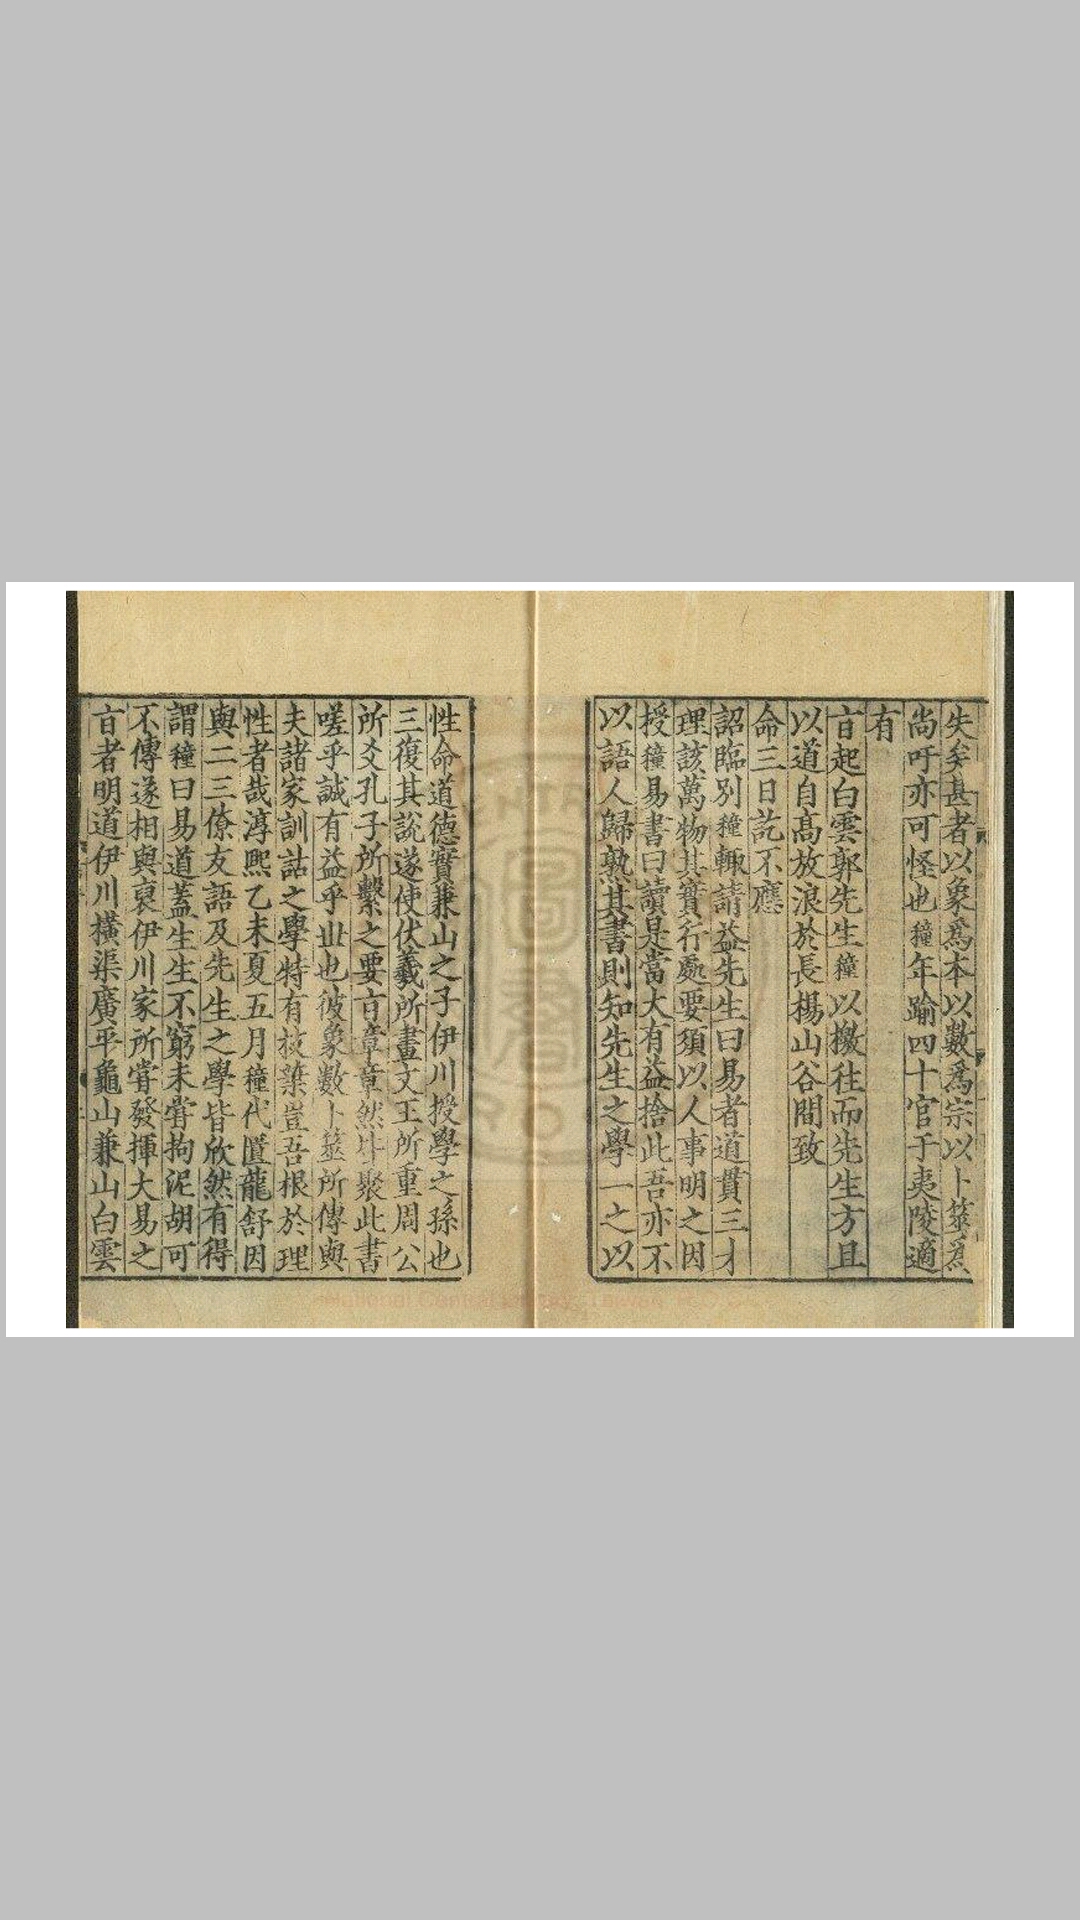 失矣甚者以象爲本以數爲宗以卜筮爲
尚吁亦可怪也穜年踰四十官于夷陵適
有
㫖起白雲郭先生穜以檄往而先生方且
以道自髙放浪於長楊山谷間致
命三日訖不應
詔臨別穜輙請益先生曰易者道貫三才
理該萬物其實行處要須以人事明之因
授穜易書曰讀是當大有益捨此吾亦不
以語人歸熟其書則知先生之學一之以
性命道德實兼山之子伊川授學之孫也
三復其說遂使伏羲所畫文王所重周公
所爻孔子所繫之要㫖章章然此聚此書
嗟乎誠有益乎丗也彼象數卜筮所傳與
夫諸家訓詁之學特有枝葉豈吾根於理
性者哉淳熙乙未夏五月穜代匱龍舒因
與二三僚友語及先生之學皆欣然有得
謂穜曰易道蓋生生不窮未甞拘泥胡可
不傳遂相與裒伊川家所甞發揮大易之
㫖者明道伊川橫渠廣平龜山兼山白雲